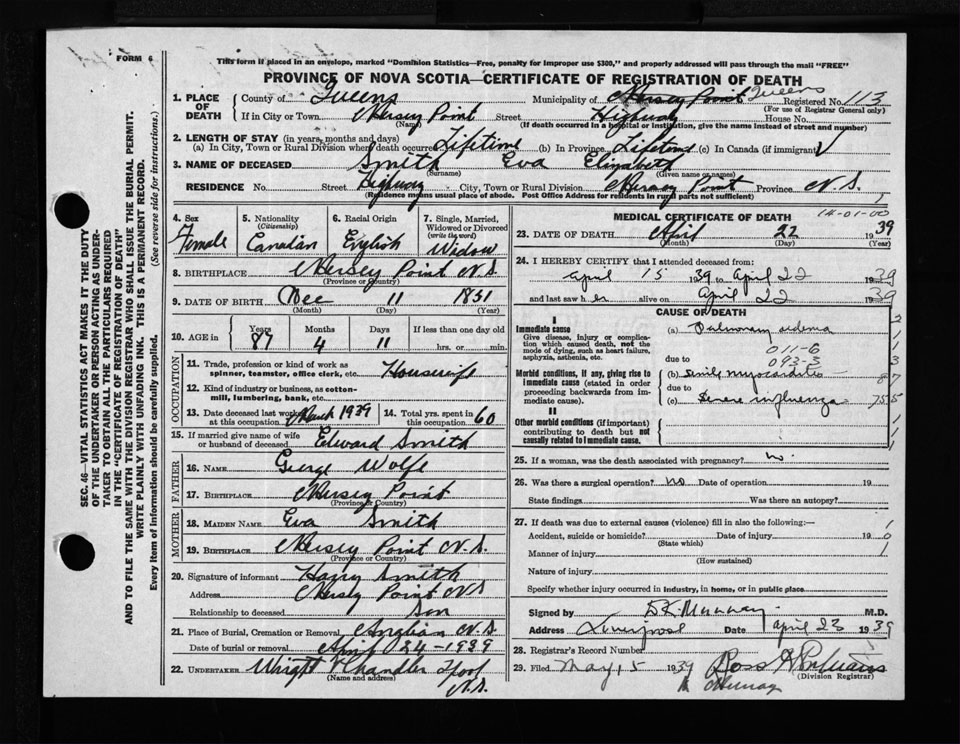 FORM 6
This form if placed in an envelope, marked "Dominion Statistics—Free, penalty for improper use $300," and properly addressed will pass through the mail "FREE"
PROVINCE OF NOVA SCOTIA—CERTIFICATE OF REGISTRATION OF DEATH
1. PLACE OF DEATH County of Queens Municipality of Mersey Point Queens Registered No. 113
(For use of Registrar General only)
If in City or Town Mersey Point Street Highway House No.
(Name) (If death occurred in a hospital or institution, give the name instead of street and number)
2. LENGTH OF STAY (in years, months and days)
(a) In City, Town or Rural Division where death occurred Lifetime (b) In Province Lifetime (c) In Canada (if immigrant) V
3. NAME OF DECEASED Smith Eva Elizabeth
(Surname) (Given name or names)
RESIDENCE No. Street Highway City, Town or Rural Division Mersey Point Province N.S.
(Residence means usual place of abode. Post Office Address for residents in rural parts not sufficient)
4. Sex Female
5. Nationality (Citizenship) Canadian
6. Racial Origin English
7. Single, Married, Widowed or Divorced (write the word) Widow
8. BIRTHPLACE Mersey Point N.S.
(Province or Country)
9. DATE OF BIRTH Dec 11 1851
(Month) (Day) (Year)
10. AGE in Years 87 Months 4 Days 11 If less than one day old hrs. or min.
OCCUPATION
11. Trade, profession or kind of work as spinner, teamster, office clerk, etc. Housewife
12. Kind of industry or business, as cotton-mill, lumbering, bank, etc.
13. Date deceased last worked at this occupation March 1939 14. Total yrs. spent in 60
15. If married give name of wife or husband of deceased Edward Smith
FATHER
16. NAME George Wolfe
17. BIRTHPLACE Mersey Point
(Province or Country)
MOTHER
18. MAIDEN NAME Eva Smith
19. BIRTHPLACE Mersey Point N.S.
(Province or Country)
20. Signature of informant Harry Smith
Address Mersey Point N.S
Relationship to deceased Son
21. Place of Burial, Cremation or Removal Anglian N.S
Date of burial or removal April 24-1939
22. UNDERTAKER Wright V Chandler Lpool
(Name and address) N.S.
MEDICAL CERTIFICATE OF DEATH 14-01-00
23. DATE OF DEATH April 22 1939
(Month) (Day) (Year)
24. I HEREBY CERTIFY that I attended deceased from:
April 15 1939 to April 22 1939
and last saw her alive on April 22 1939
CAUSE OF DEATH
I
Immediate cause
Give disease, injury or complication which caused death, not the mode of dying, such as heart failure, asphyxia, asthenia, etc.
(a) Pulmonary edema
011-6
due to 093-3
Morbid conditions, if any, giving rise to immediate cause (stated in order proceeding backwards from immediate cause).
(b) Senile myocarditis
due to
(c) Severe influenza
II
Other morbid conditions (if important) contributing to death but not causally related to immediate cause.
25. If a woman, was the death associated with pregnancy? no.
26. Was there a surgical operation? no Date of operation 19
State findings Was there an autopsy?
27. If death was due to external causes (violence) fill in also the following:—
Accident, suicide or homicide? Date of injury 19
(State which)
Manner of injury
(How sustained)
Nature of injury
Specify whether injury occurred in industry, in home, or in public place
Signed by M.D.
Address Liverpool Date April 23 1939
28. Registrar's Record Number
29. Filed May 15 1939 Ross
(Division Registrar)
SEC. 46—VITAL STATISTICS ACT MAKES IT THE DUTY
OF THE UNDERTAKER OR PERSON ACTING AS UNDER-
TAKER TO OBTAIN ALL THE PARTICULARS REQUIRED
IN THE "CERTIFICATE OF REGISTRATION OF DEATH"
AND TO FILE THE SAME WITH THE DIVISION REGISTRAR WHO SHALL ISSUE THE BURIAL PERMIT.
WRITE PLAINLY WITH UNFADING INK. THIS IS A PERMANENT RECORD.
Every item of information should be carefully supplied. (See reverse side for instructions.)